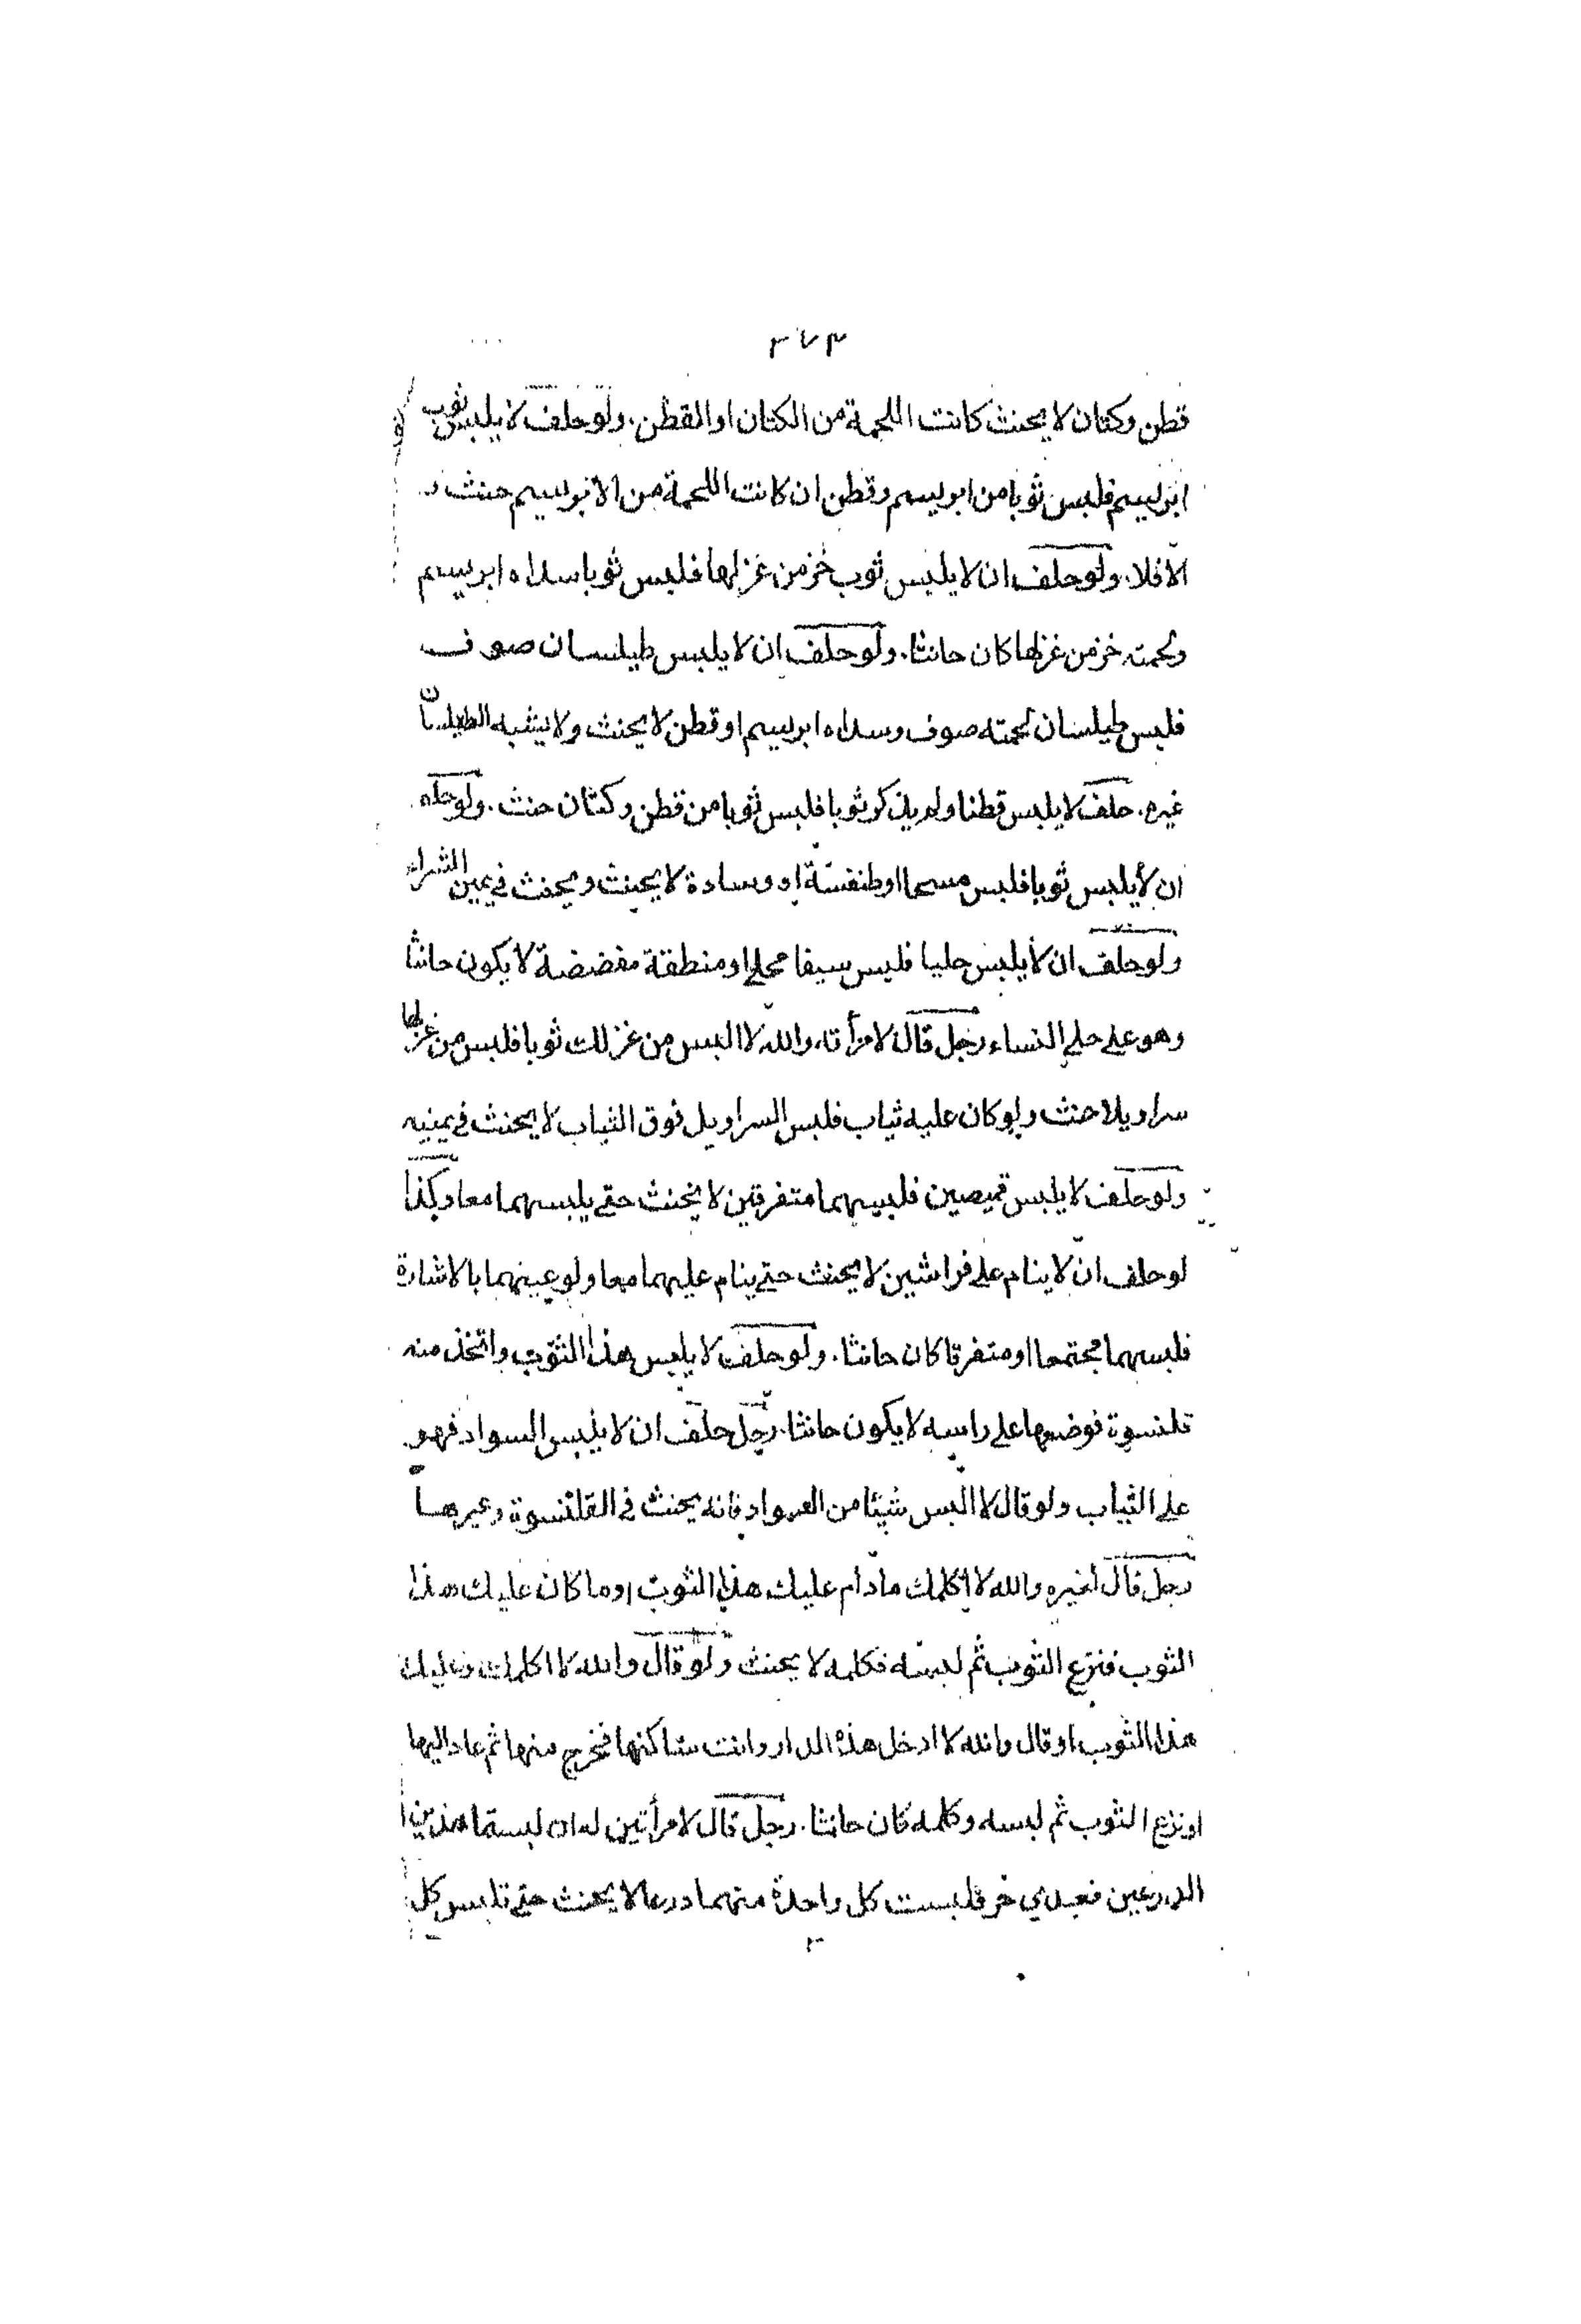 ٣٧٣
قطن وكتان لا يحنث كانت اللحمة من الكتان او القطن. ولو حلف لا يلبس ثوب
ابريسم فلبس ثوبا من ابريسم وقطن ان كانت اللحمة من الابريسم حنث و
الا فلا. ولو حلف ان لا يلبس ثوب خز من غزلها فلبس ثوبا سداه ابريسم
ولحمته خز من غزلها كان حانثا. ولو حلف ان لا يلبس طيلسان صوف
فلبس طيلسان لحمته صوف وسداه ابريسم او قطن لا يحنث ولا يشبه الطيلسان
غيره. حلف لا يلبس قطنا ولم يذكر ثوبا فلبس ثوبا من قطن وكتان حنث. ولو حلف
ان لا يلبس ثوبا فلبس مسحا او طنفسة او وسادة لا يحنث ويحنث في يمين الشراء
ولو حلف ان لا يلبس حليا فلبس سيفا محلى او منطقة مفضضة لا يكون حانثا
وهو على حلي النساء رجل قال لامرأته والله لا البس من غزلك ثوبا فلبس من غزلها
سراويلا حنث ولو كان عليه ثياب فلبس السراويل فوق الثياب لا يحنث في يمينه
ولو حلف لا يلبس قميصين فلبسهما متفرقين لا يحنث حتى يلبسهما معا وكذا
لو حلف ان لا ينام على فراشين لا يحنث حتى ينام عليهما معا ولو عينهما بالاشارة
فلبسهما مجتمعا او متفرقا كان حانثا. ولو حلف لا يلبس هذا الثوب واتخذ منه
قلنسوة فوضعها على راسه لا يكون حانثا. رجل حلف ان لا يلبس السواد فهو
على الثياب ولو قال لا البس شيئا من السواد فانه يحنث في القلنسوة وغيرها
رجل قال لغيره والله لا اكلمك مادام عليك هذا الثوب او ما كان عليك هذا
الثوب فنزع الثوب ثم لبسه فكلمه لا يحنث ولو قال والله لا اكلمك وعليك
هذا الثوب او قال والله لا ادخل هذه الدار وانت ساكنها فخرج منها ثم عاد اليها
او نزع الثوب ثم لبسه وكلمه كان حانثا. رجل قال لامرأتين له ان لبستما هذين
الدرعين فعبدي حر فلبست كل واحدة منهما درعا لا يحنث حتى تلبس كل